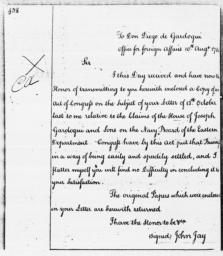 To Don Diego de Gardoqui
Office for foreign Affairs 10th Augt 17
Sir
I this Day received and have now the
Honor of transmitting to you herewith enclosed a Copy of an
Act of Congress on the Subject of your Letter of 12th October
last to me relative to the Claims of the House of Joseph
Gardoqui and Sons on the Navy Board of the Eastern
Department Congress have by this Act put that Business
in a way of being easily and speedily settled, and I
flatter myself you will find no Difficulty in concluding it to
your Satisfaction.
The original Papers which were enclosed
in your Letter are herewith returned
I have the Honor to be &ca
signed John Jay